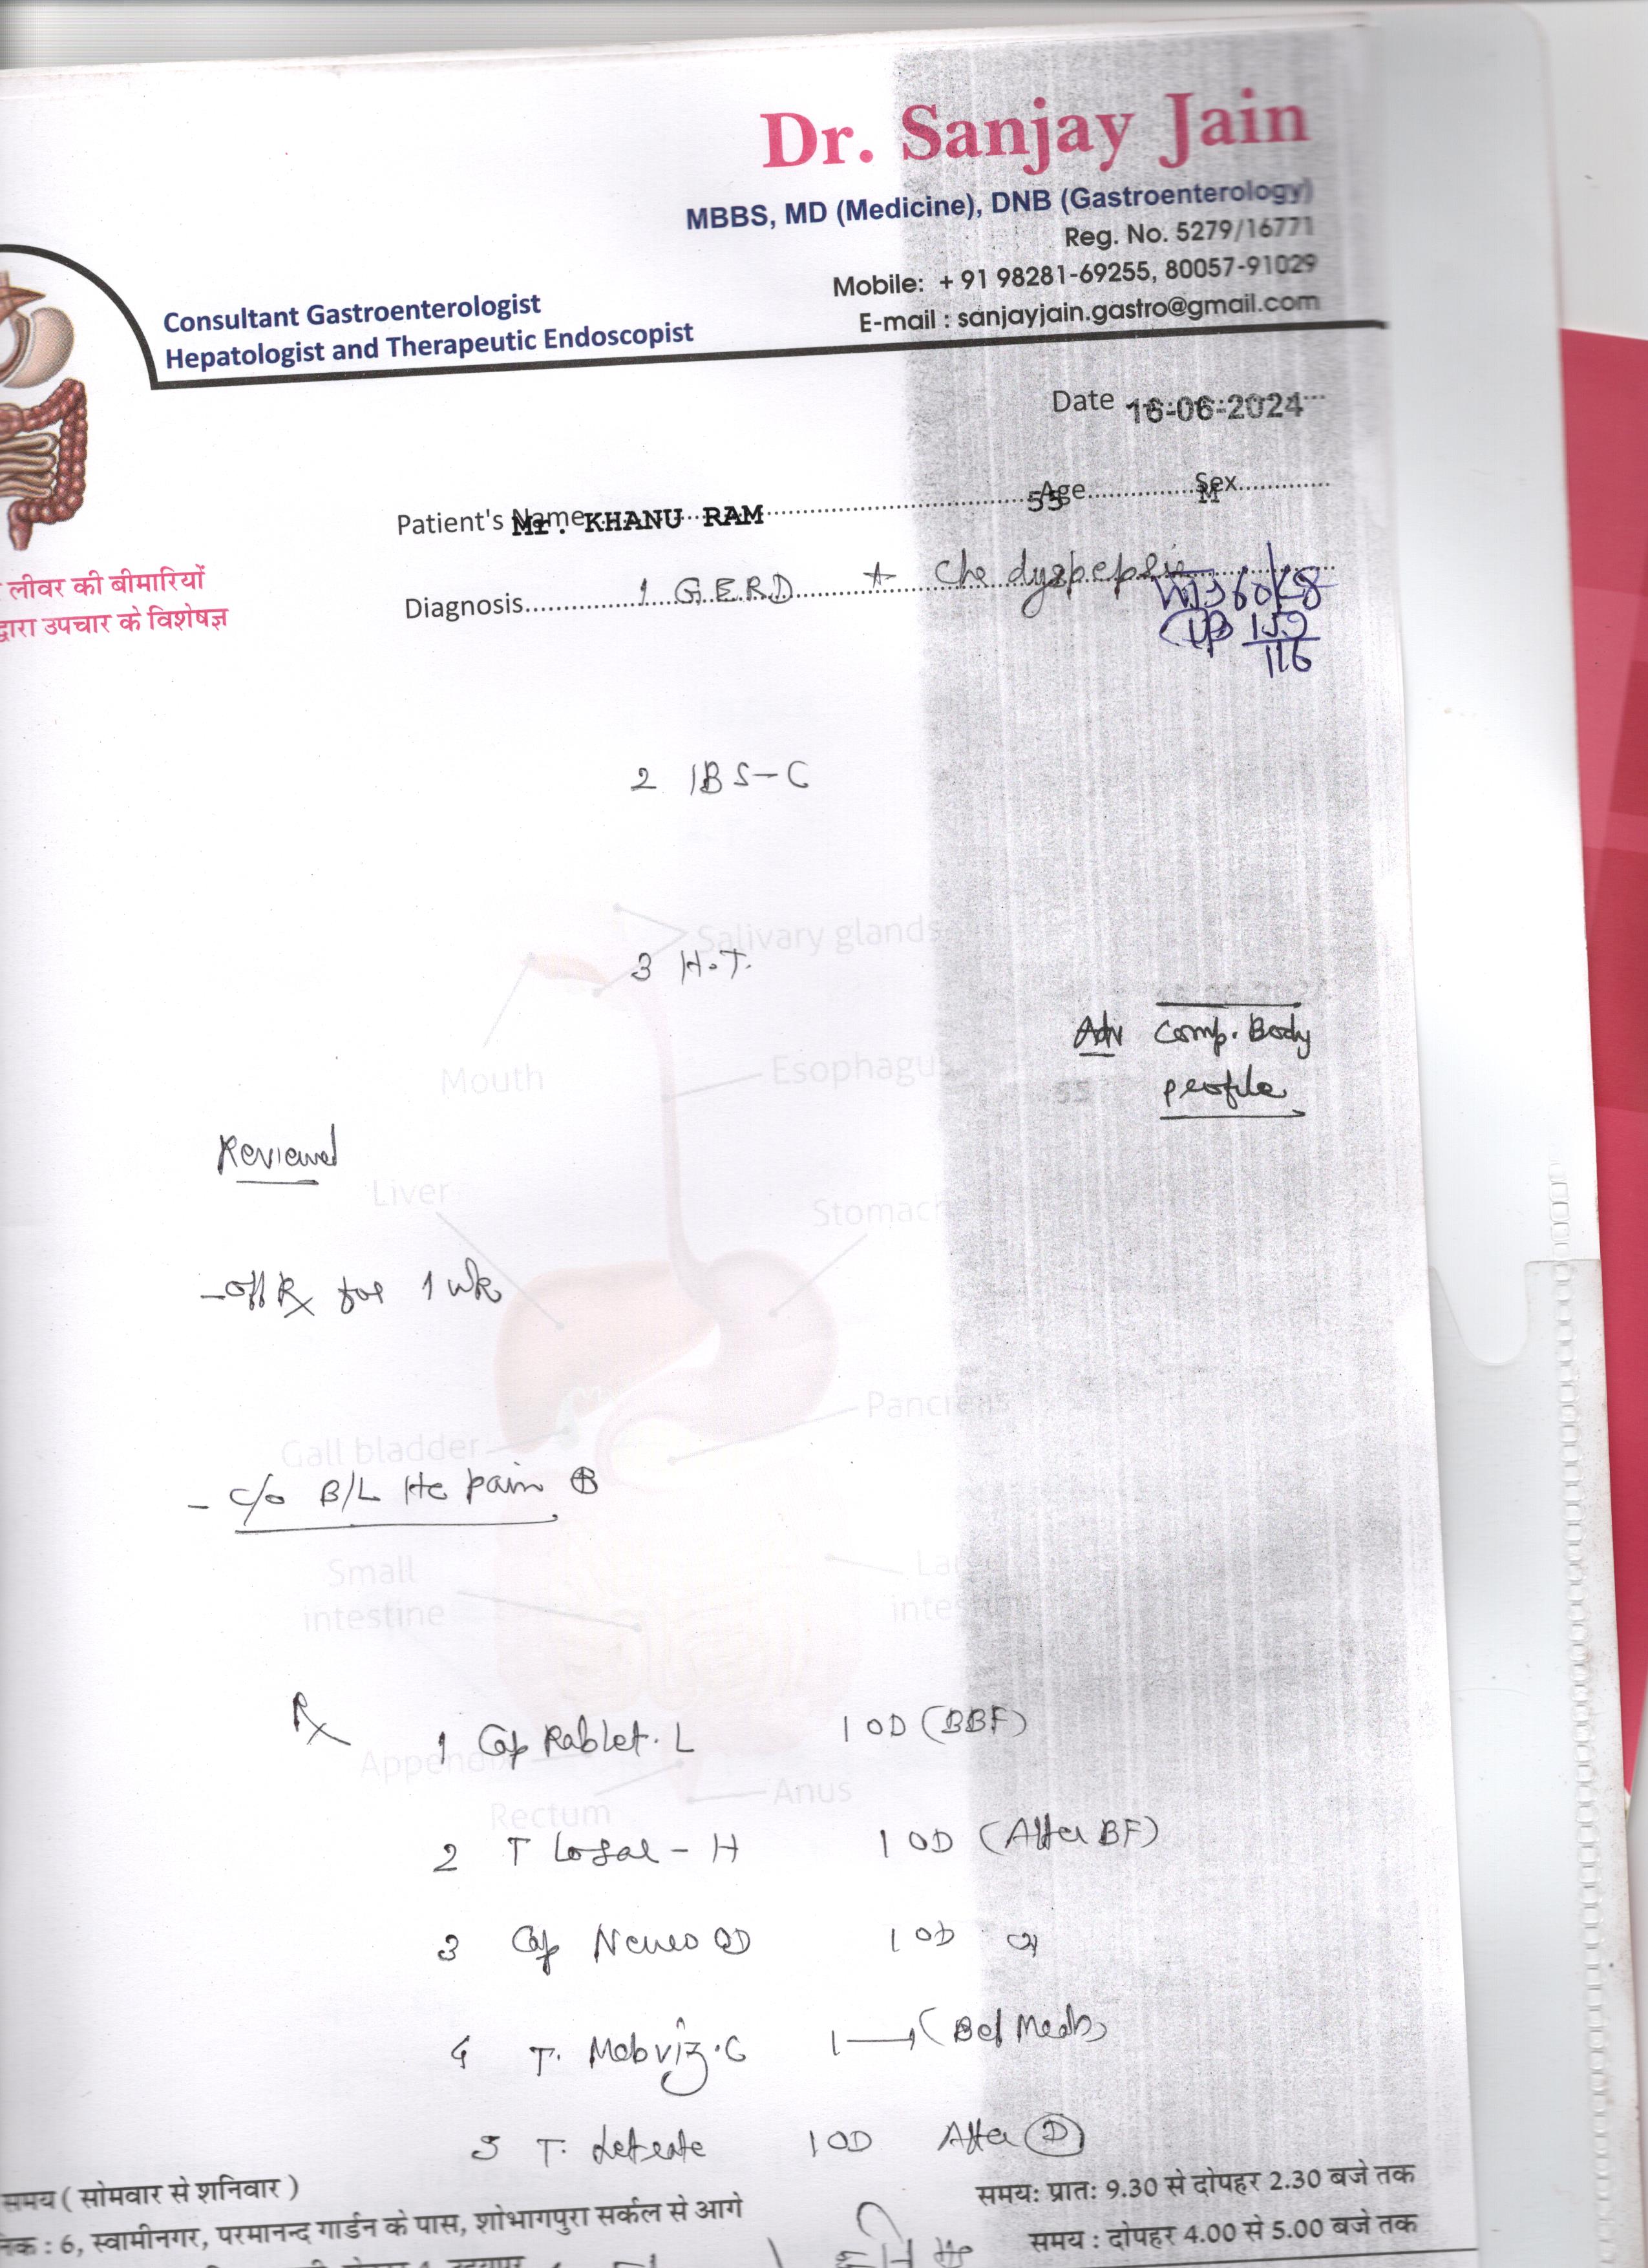 Dr. Sanjay Jain
MBBS, MD (Medicine), DNB (Gastroenterology)
Reg. No. 5279/16771
Mobile: + 91 98281-69255, 80057-91029
E-mail : sanjayjain.gastro@gmail.com
Consultant Gastroenterologist
Hepatologist and Therapeutic Endoscopist
Date 16-06-2024
Patient's Name Mr. KHANU RAM Age 55 Sex M
लीवर की बीमारियों
द्वारा उपचार के विशेषज्ञ
Diagnosis 1 GERD + Chr dyspepsia
WT 60 Kg
BP 159
116
2 IBS-C
3 H.T.
Adv Comp. Body
profile
Salivary glands
Mouth
Esophagus
Reviewed
Liver
Stomach
- off Rx for 1 wk
Pancreas
Gall bladder
- c/o B/L He pain ⊕
Small
intestine
Rx
1 Cap Rablet. L 1 OD (BBF)
Appendix
Anus
Rectum
2 T Losar - H 1 OD (After BF)
3 Cap OD 1 OD
4 T. 1 → (Bef Meals)
5 T. 1 OD After (D)
समय ( सोमवार से शनिवार )
समय: प्रातः 9.30 से दोपहर 2.30 बजे तक
: 6, स्वामीनगर, परमानन्द गार्डन के पास, शोभागपुरा सर्कल से आगे
समय : दोपहर 4.00 से 5.00 बजे तक